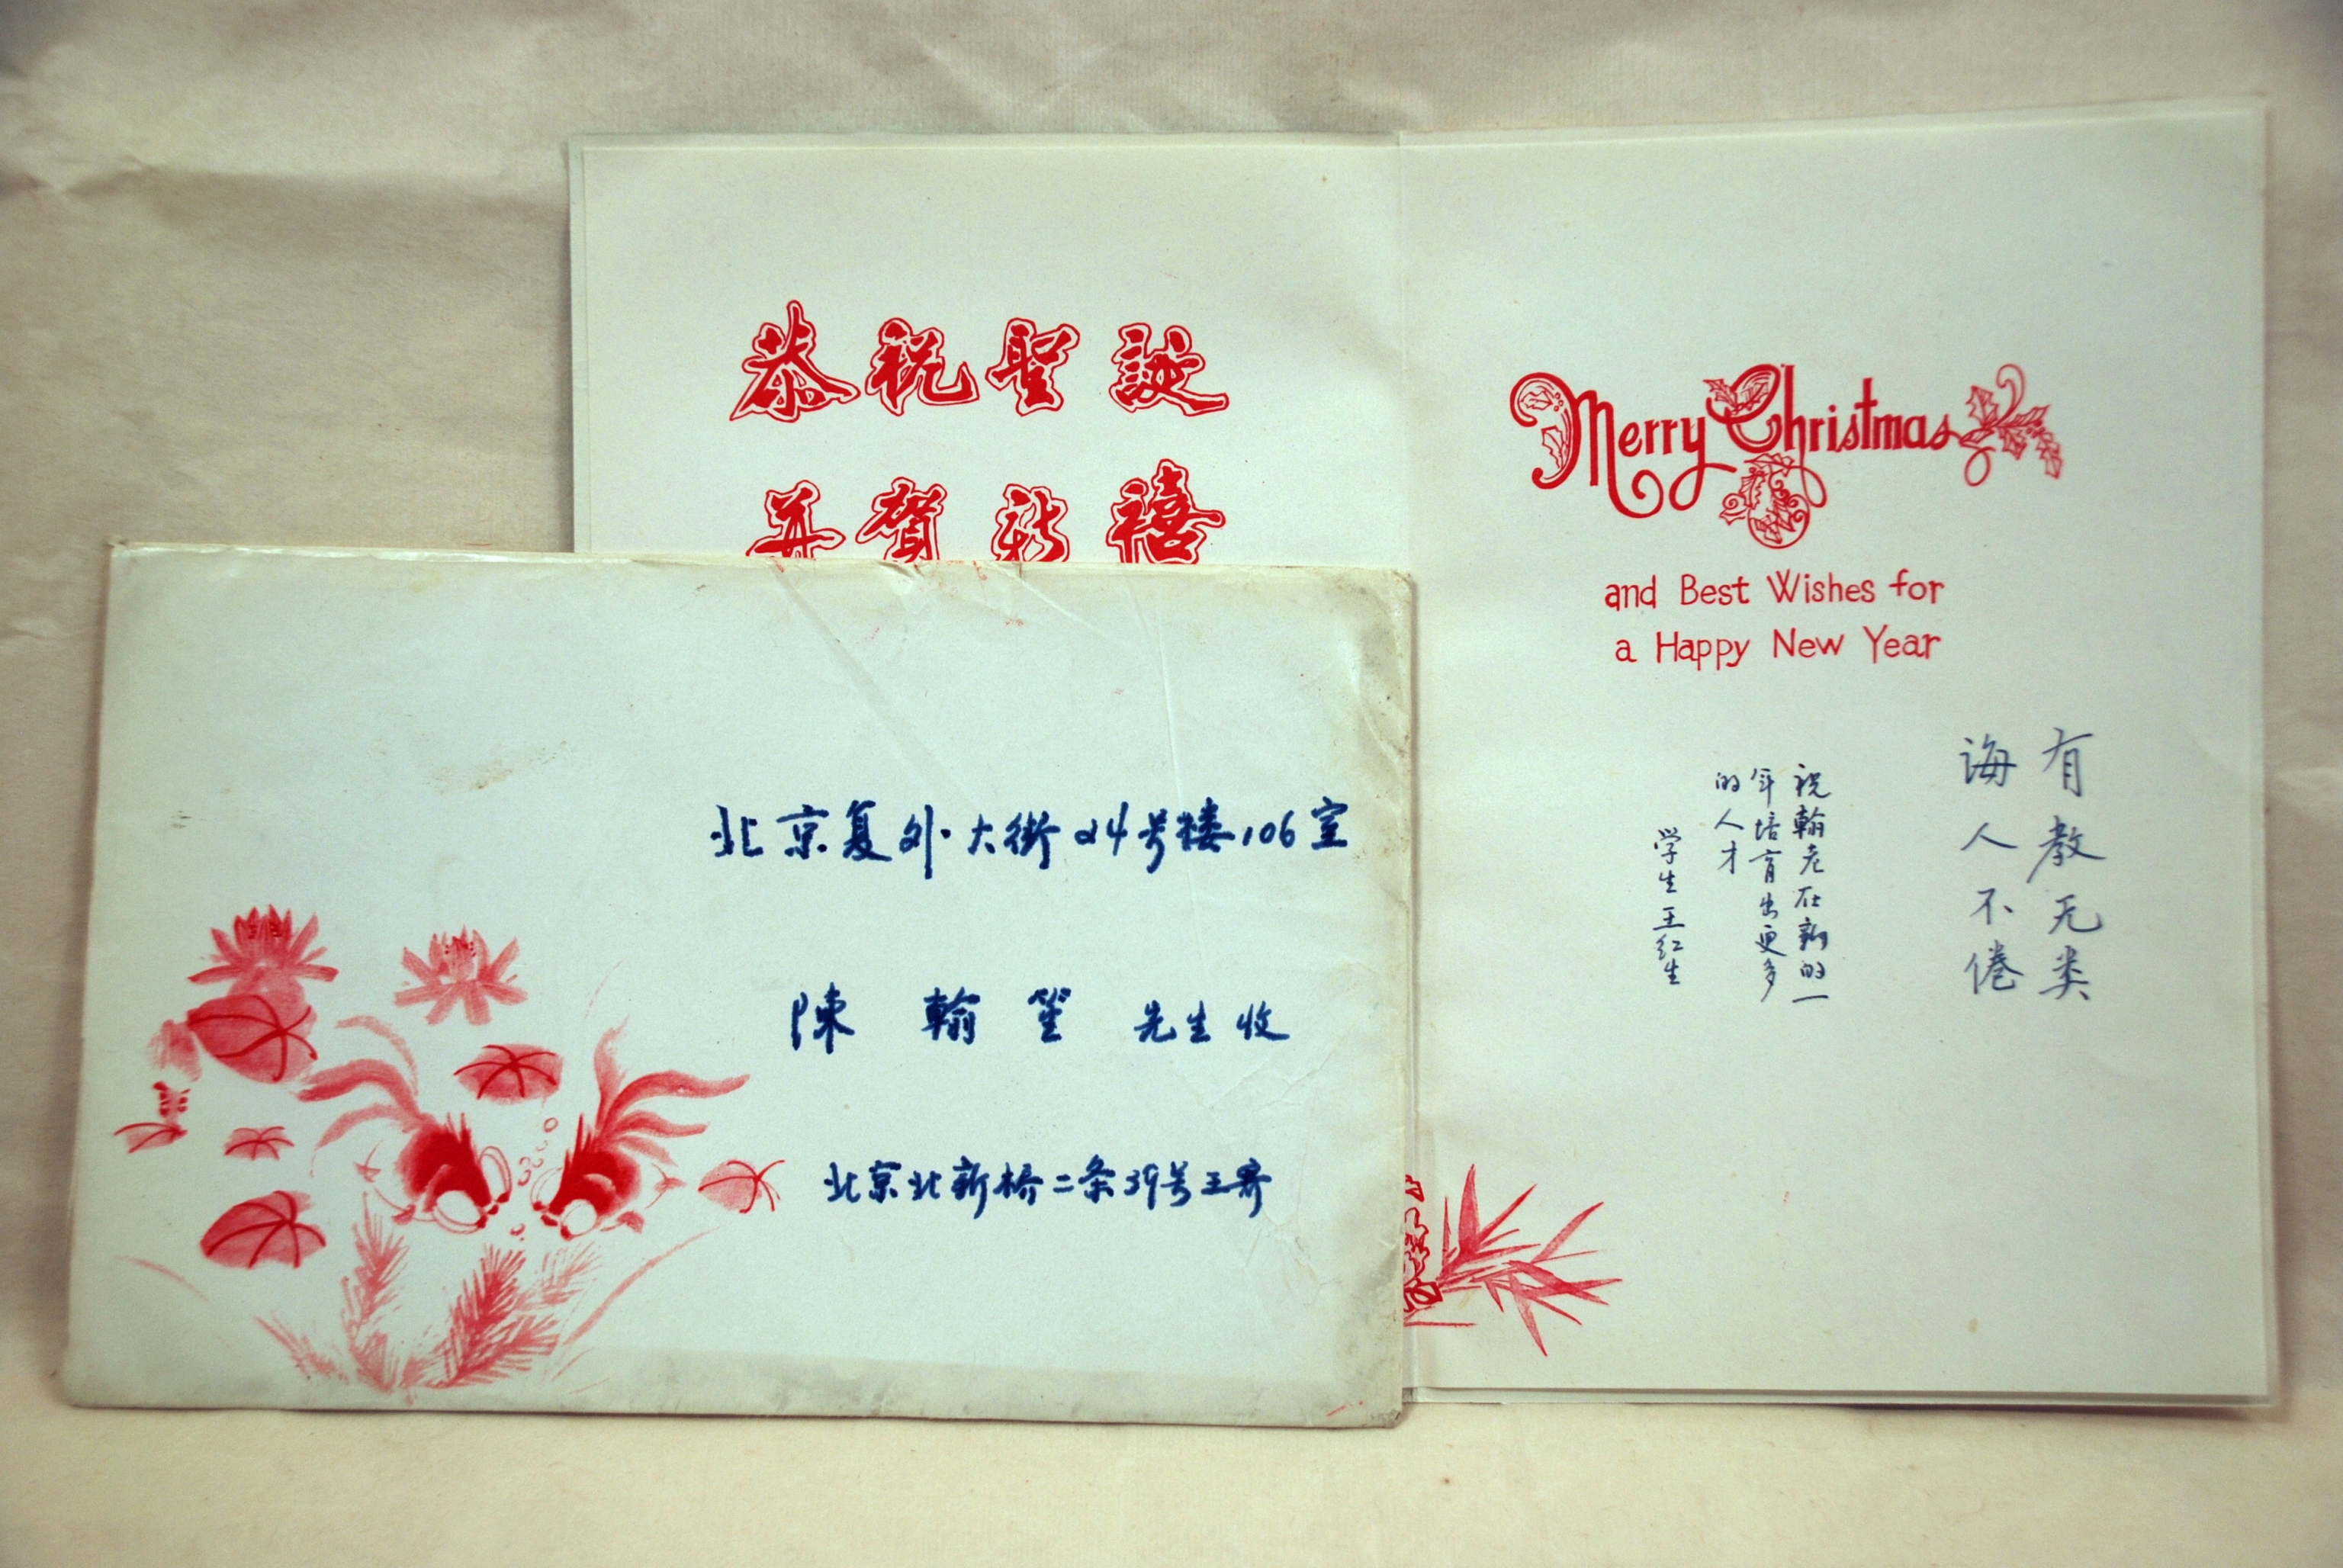 恭祝聖誕
并賀新禧
Merry Christmas
and Best Wishes for
a Happy New Year
有教无类
诲人不倦
祝翰老在新的一
年培育出更多
的人才
学生王红生
北京复外大街24号楼106室
陳翰笙先生收
北京北新桥二条39号王寄